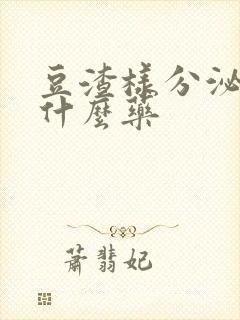 豆渣样分泌
什麼藥
萧翡妃